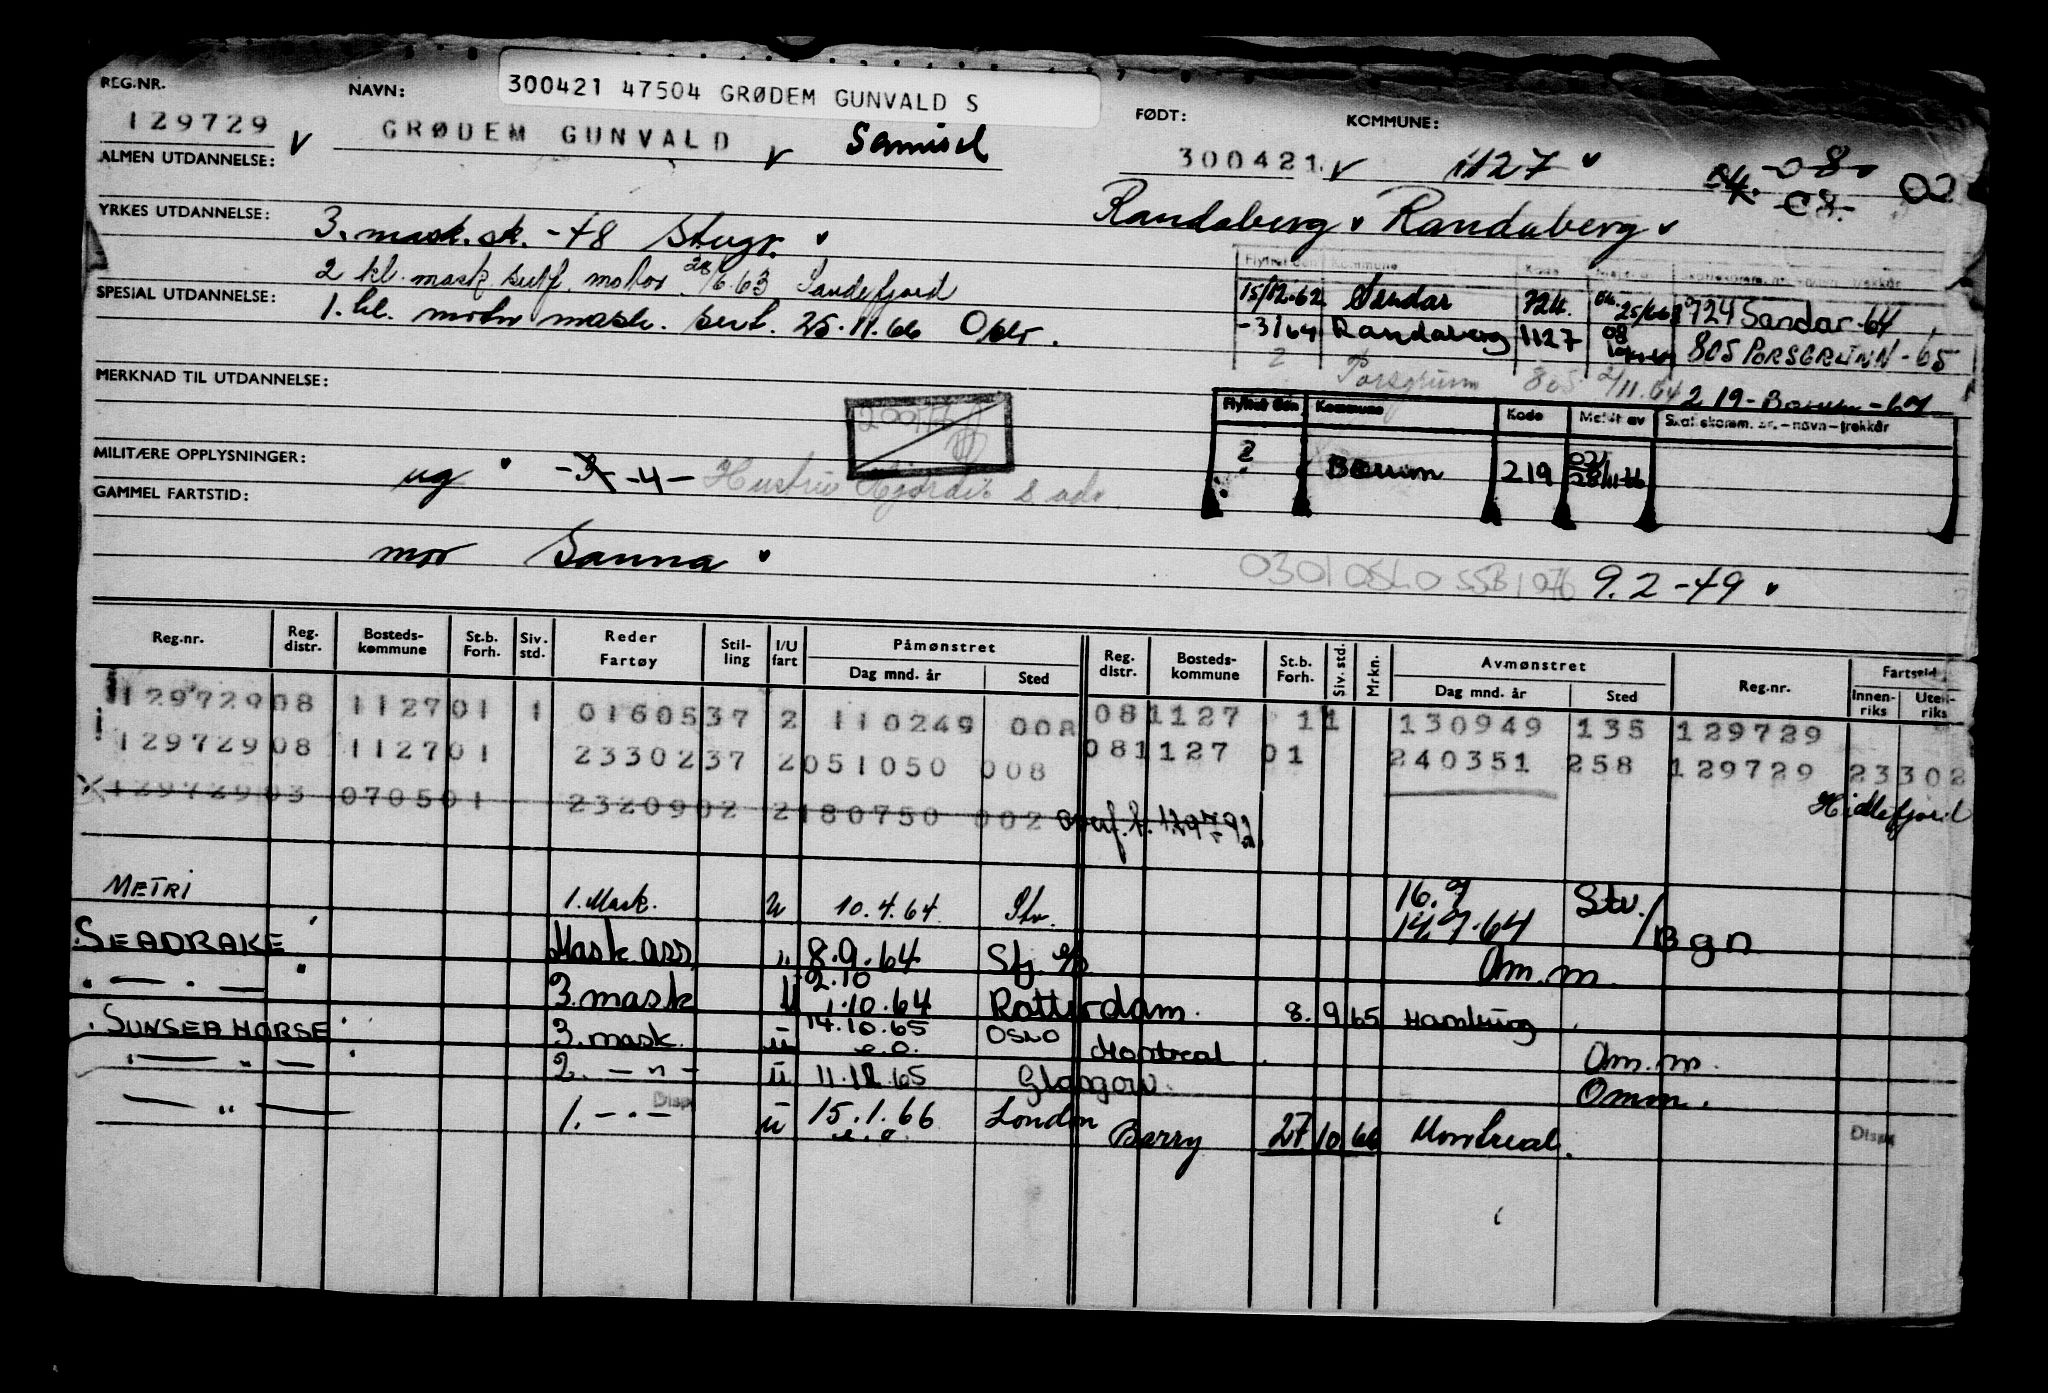 REG.NR. NAVN: 300421 47504 GRØDEM GUNVALD S FØDT: KOMMUNE:
129729 v GRØDEM GUNVALD v 300421. v 1127 v 08 02
ALMEN UTDANNELSE:
YRKES UTDANNELSE: 3. mask.sk. -48 Stvgr. Randaberg v Randaberg v
2 kl. mask sertf. motor 28/6.63 Sandefjord
Flyttet den Kommune Kode Meldt av
SPESIAL UTDANNELSE: 1. kl. motor mask. sert. 25.11.66 Oslo.
15/12-62 Sandar 724. 724 Sandar-64
-3/64 Randaberg 1127 08 805 PORSGRUNN-65
2 Porsgrunn 805 2/11.64 219-Bærum-67
MERKNAD TIL UTDANNELSE:
Flyttet den Kommune Kode Meldt av Skatt skomm. nr. - navn - trekkår
2 Bærum 219 021 28/11-66
MILITÆRE OPPLYSNINGER: ug -3- -4- Hustru
GAMMEL FARTSTID:
mor Sanna 0301 OSLO SSB 1976 9.2-49
Reg.nr. Reg. distr. Bosteds-kommune St.b. Forh. Siv. std. Reder Fartøy Stil-ling I/U fart Påmønstret Dag mnd. år Sted Reg. distr. Bosteds-kommune St.b. Forh. Siv. std. Mrkn. Avmønstret Dag mnd. år Sted Reg.nr. Fartstid Innen-riks Uten-riks
129729 08 1127 01 1 01605 37 2 110249 008 08 1127 1 1 130949 135 129729
129729 08 1127 01 23302 37 2 051050 008 08 1127 01 240351 258 129729 23302
129729 03 0705 01 23209 02 2 180750 002 Overf. t. 129792 Hidlefjord
METRI 1. Mask. u 10.4.64 Stv. 16.7 14.7.64 Stv./Bgn
SEADRAKE Mask ass " 8.9.64 Om.m.
— " — 3. mask u 2.10 1.10.64 Rotterdam. 8. 9 65 Hamburg.
SUNSEAHORSE 3. mask. u 14.10.65 e.o. OSLO Montreal. Om.m.
— " — 2. — " — u 11.12.65 Glasgow. Omm.
— " — 1. — " — Disp u 15.1.66 e.o. London Barry 27 10 66 Montreal. Disp